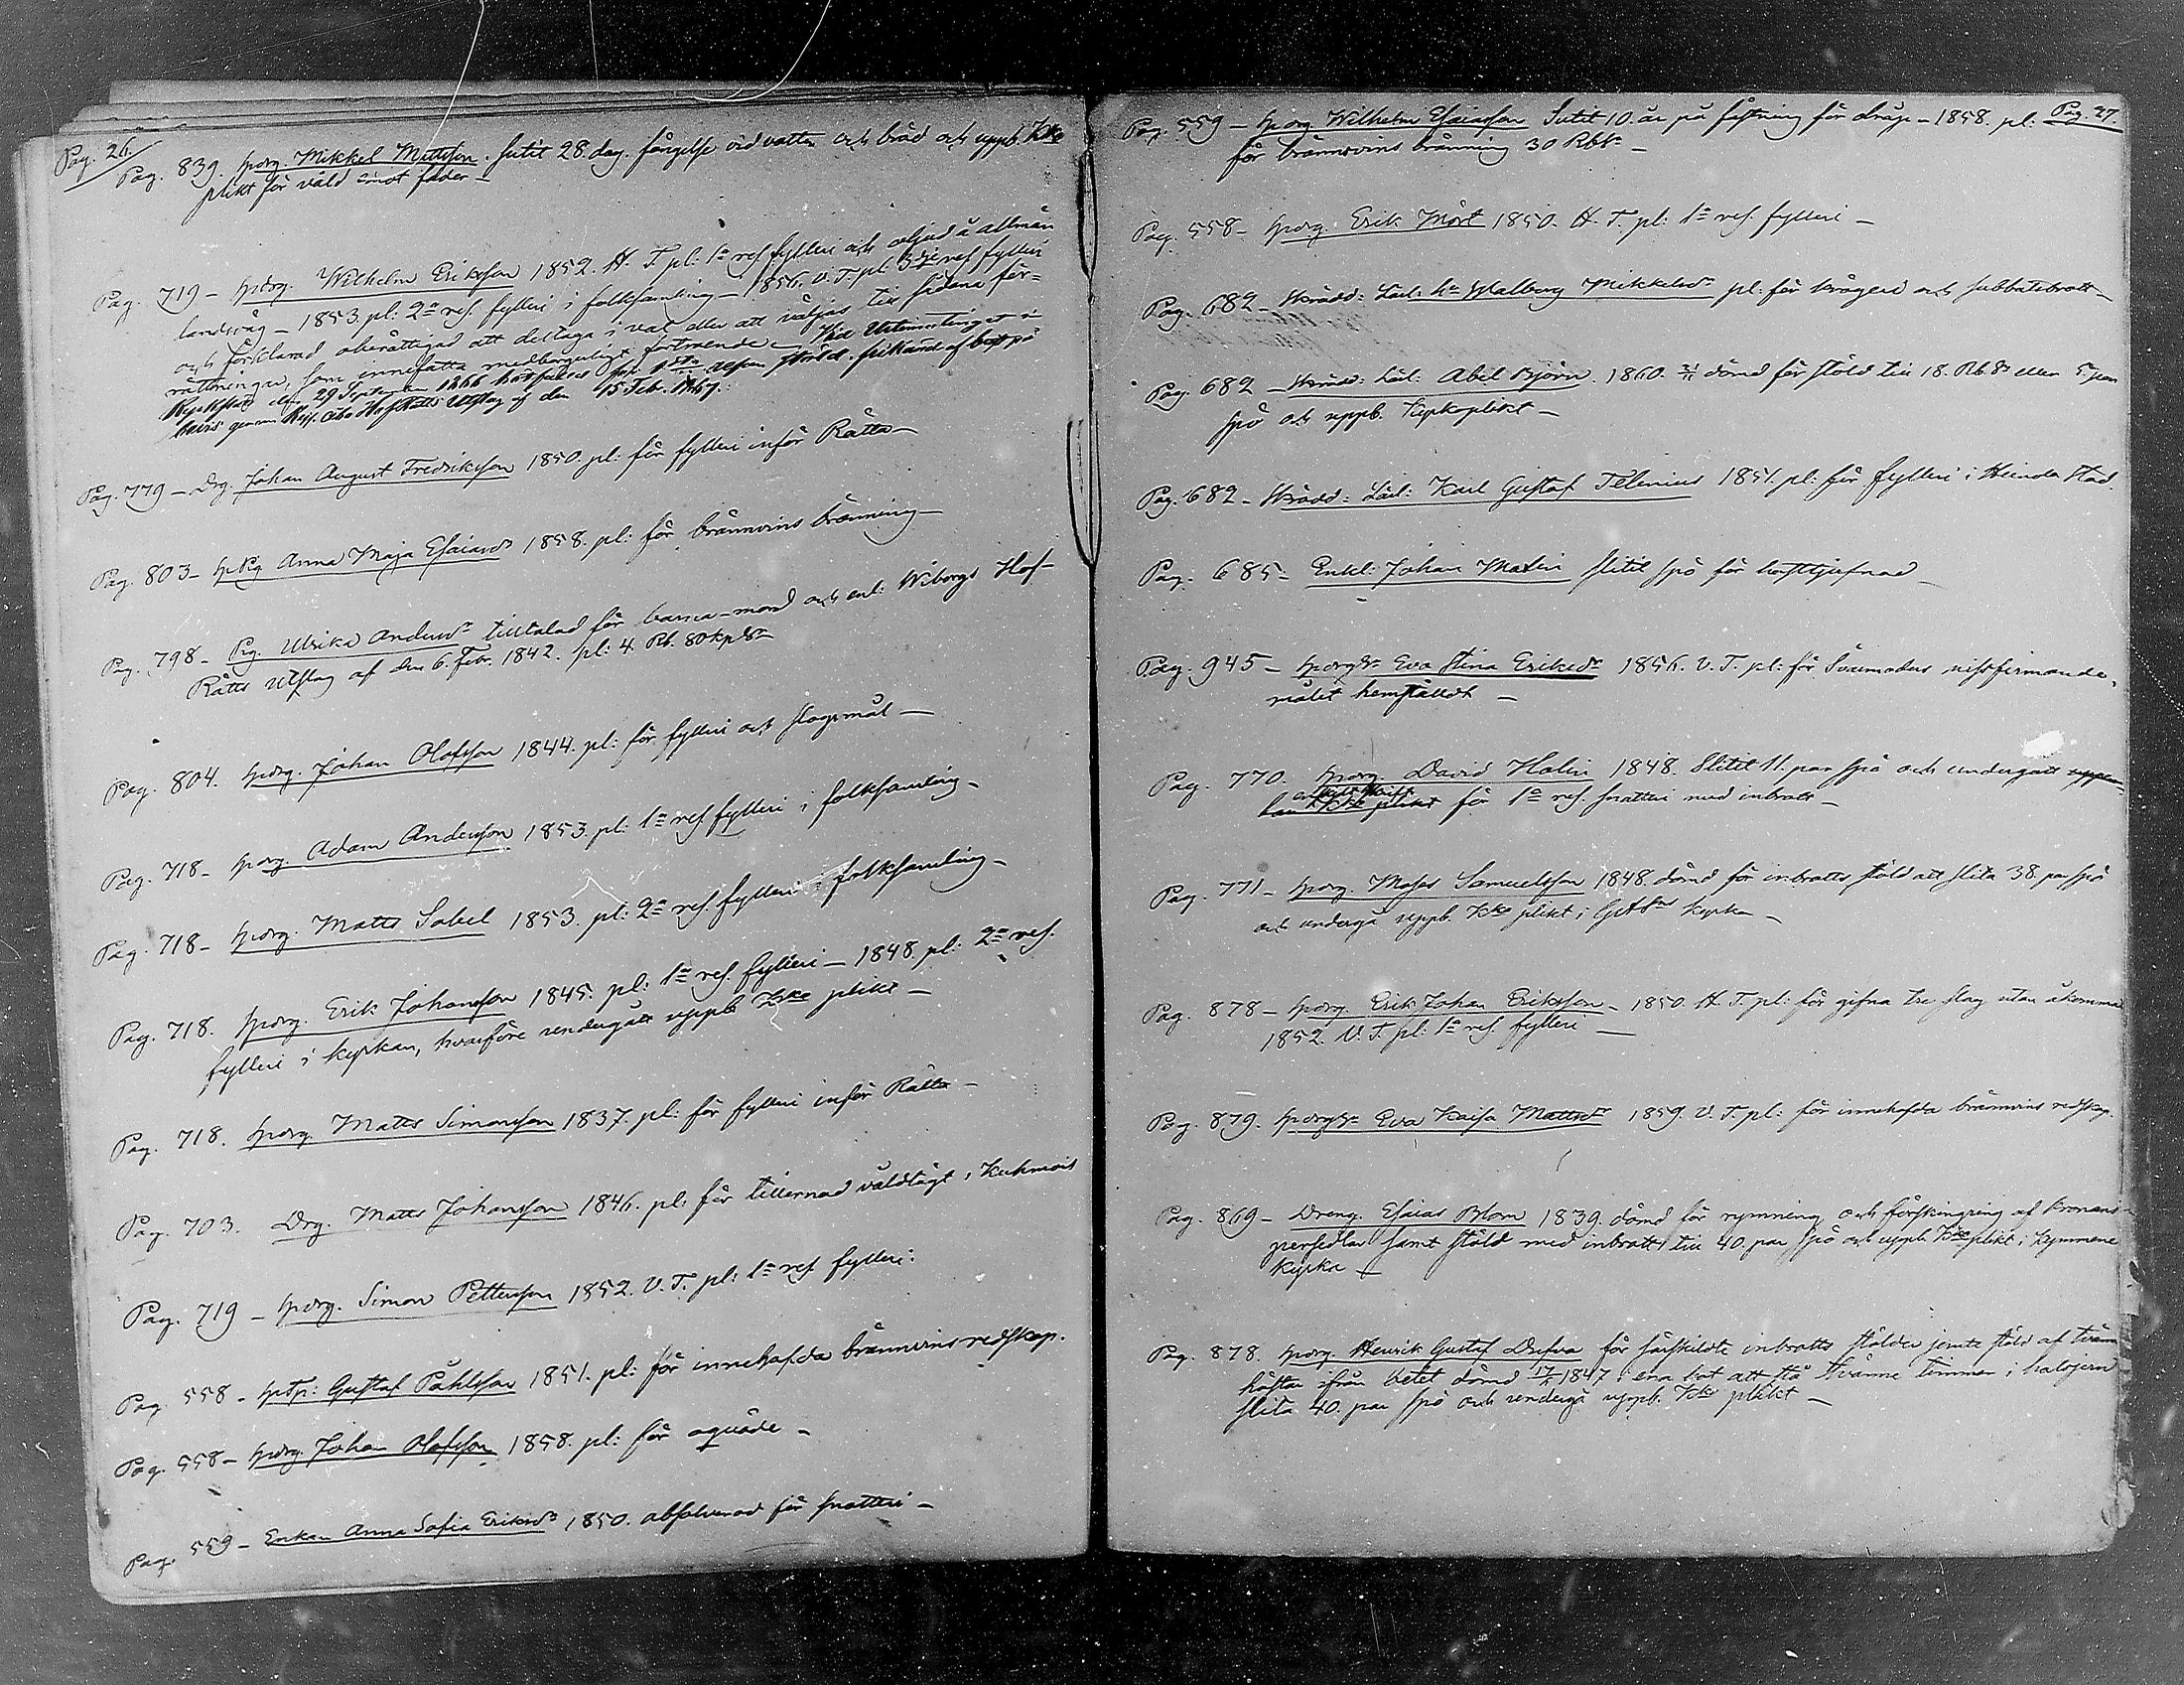 Pag. 26.
Pag. 839. Spdrg. Mikkel Mattsson. sutit 28. dag. fängelse vid vatten och bröd och uppb. Kke
plikt för våld emot fader —
Pag. 719 — Spdrg. Wilhelm Eriksson 1852. H. T. pl: 1a res. fylleri och oljud å allmän
landsväg — 1853. pl: 2a res. fylleri i folksamling — 1856. V. T. pl: 3dje res. fylleri
och förklarad oberättigad att deltaga i val eller att väljas till sådana för-
rättningar, som innefatta medborgerligt förtroende — Vid Urtimatinget i
den 29 September 1866 för 1sta resan stöld
genom Kejs. Åbo HofRätts Utslag af den 15 Febr. 1867.
Pag. 779 — Drg. Johan August Fredriksson 1850. pl: för fylleri inför Rätta —
Pag. 803 — Anna Maja Esaiasdr 1858. pl: för brännvins bränning —
Pag. 798 — Pig. Ulrika Andersdr tilltalad för barna-mord och enl: Wiborgs Hof-
Rätts Utslag af den 6. Febr. 1842. pl: 4 Rb. 80 kop. Sr
Pag. 804. Spdrg. Johan Olofsson 1844. pl: för fylleri och slagsmål —
Pag. 718 — Spdrg. Adam Andersson 1853. pl: 1a res. fylleri i folksamling —
Pag. 718 — Spdrg. Matts Sabel 1853. pl: 2a res. fylleri i folksamling —
Pag. 718. Spdrg. Erik Johansson 1845. pl: 1a res. fylleri — 1848. pl: 2a res.
fylleri i kyrkan, hvarföre undergått uppb. Kke plikt —
Pag. 718. Spdrg. Matts Simonsson 1837. pl: för fylleri inför Rätta —
Pag. 703. Drg. Matts Johansson 1846. pl: för tillernad våldtägt i Kuhmois
Pag. 719 — Spdrg. Simon Pettersson 1852. V. T. pl: 1a res. fylleri:
Pag. 558 — Gustaf Påhlsson 1851. pl: för innehafda brännvins redskap.
Pag. 558 — Spdrg. Johan Olofsson 1858. pl: för oqväde —
Pag. 559 — Enkan Anna Sofia Eriksdr 1850. absolverad för snatteri —
Pag. 27.
Pag. 559 — Spdrg. Wilhelm Esaiasson Sutit 10. år på fästning för dråp — 1858. pl:
för brännvins bränning 30 Rblr —
Pag. 558 — Spdrg. Erik Mört 1850. H. T. pl: 1a res. fylleri —
Pag. 682 — Skrädd: Lärl: hr Walborg Mikkelsdr pl: för krögeri och sabbatsbrott —
Pag. 682 — Skrädd: Lärl: Abel Björn. 1860. dömd för stöld till 18. Rb. Sr eller 5 par
spö och uppb. Kyrkoplikt —
Pag. 682 — Skrädd: Lärl: Karl Gustaf Telenius 1851. pl: för fylleri i Heinola Stad.
Pag. 685 — Enkl: Johan Malin slitit spö för hästtjufnad —
Pag. 945 — Eva Stina Eriksdr 1856. V. T. pl: för Svärmoders missfirmande,
målet hemstäldt —
Pag. 770. Spdrg. David Holin 1848. Slitit 11. par spö och undergått uppen-
bar enskilt skrift Kke plikt för 1a res. snatteri med inbrott —
Pag. 771 — Spdrg. Moses Samuelsson 1848. dömd för inbrotts stöld att slita 38. par spö
och undergå uppb. Kke plikt i kyrka —
Pag. 878 — Spdrg. Erik Johan Eriksson — 1850. H. T. pl: för gifna tre slag utan åkomma
1852. V. T. pl: 1a res. fylleri —
Pag. 879. Eva Kaisa Mattsdr 1859. V. T. pl: för innehafda brännvins redskap.
Pag. 869 — Dreng. Esaias Blom 1839. dömd för rymning och förskingring af Kronans
persedlar samt stöld med inbrott till 40. par spö och uppb. Kke plikt i Kymmene
kyrka —
Pag. 878. Spdrg. Henrik Gustaf Dufva för särskildte inbrotts stölder jemte stöld af tvänne
hästar ifrån betet dömd 1847 i ena bot att stå tvänne timmar i halsjern
slita 40. par spö och undergå uppb. Kke plikt —